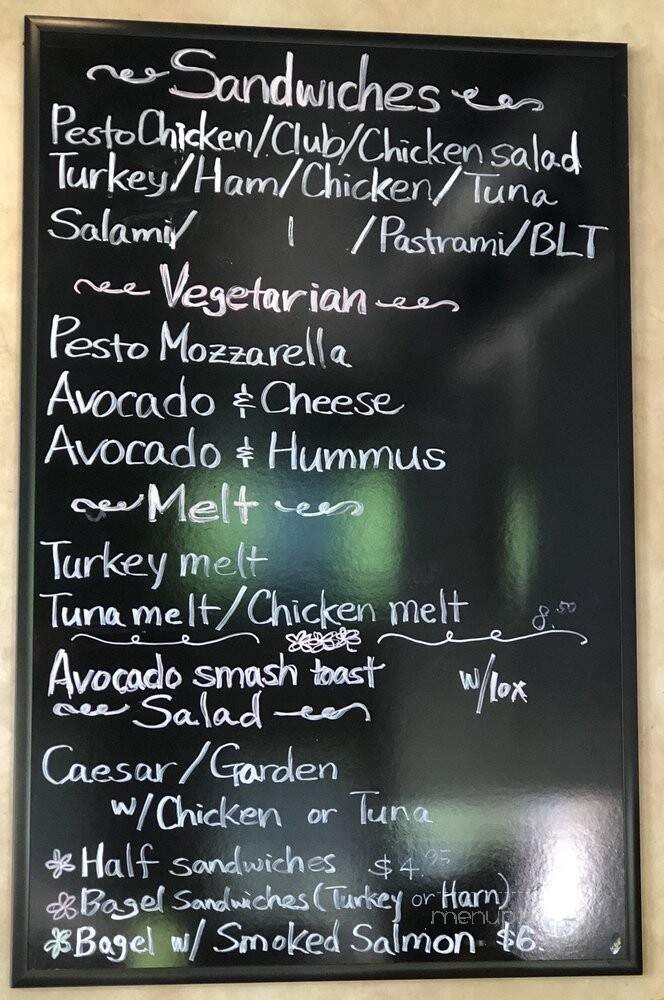 Sandwiches
Pesto Chicken/Club/Chicken salad
Turkey/Ham/Chicken/Tuna
Salami/ / /Pastrami/BLT
Vegetarian
Pesto Mozzarella
Avocado & Cheese
Avocado & Hummus
Melt
Turkey melt
Tuna melt/Chicken melt 8.50
Avocado smash toast w/lox
Salad
Caesar/Garden
w/Chicken or Tuna
Half sandwiches $4.95
Bagel Sandwiches (Turkey or Ham)
Bagel w/ Smoked Salmon $6.